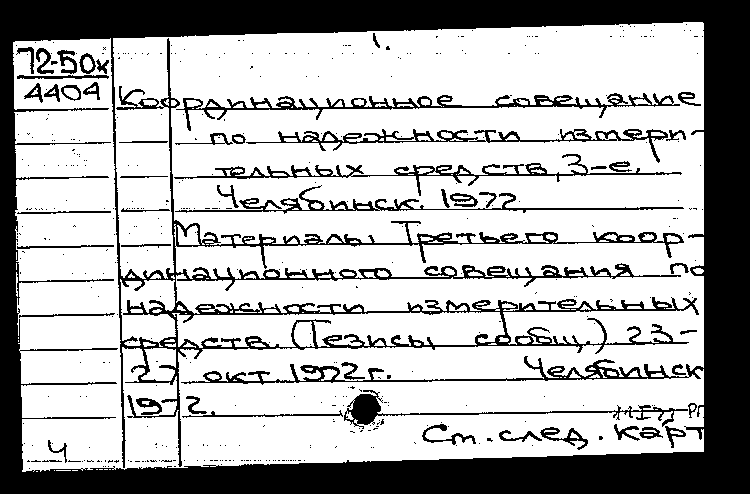 1.
72-50к
4404
Координационное совещание
по надежности измери-
тельных средств, 3-е.
Челябинск. 1972.
Материалы Третьего коор-
динационного совещания по
надежности измерительных
средств. (Тезисы сообщ.) 23-
27 окт. 1972г. Челябинск
1972.
См. след. карт
Ч